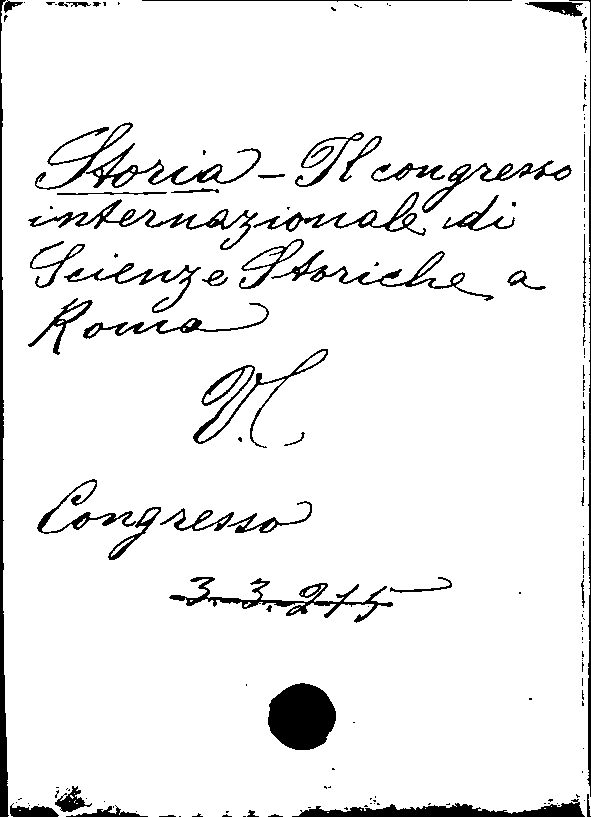 Storia - Il congresso
internazionale di
Scienze Storiche a
Roma
V.
Congresso
3.3.215